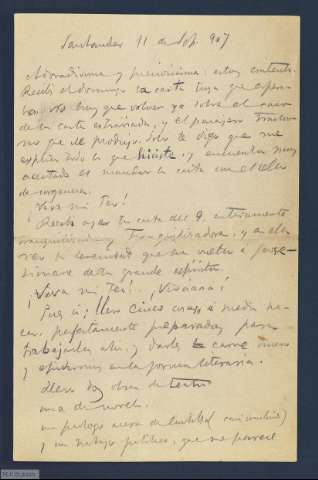 Santander 11 de Sep. 907
Adoradísima y preciosísima: estoy contento.
Recibí el domingo la carta tuya que espera-
ba. No hay que volver ya sobre el caso
de tu carta extraviada, y el pasajero trastor-
no que me produjo. Solo te digo que me
explico todo lo que hiciste, y encuentro muy
acertado el mandar la carta con el sello
de urgencia.
¡Viva mi Teo!
Recibo ayer tu carta del 9, enteramente
tranquilizada y tranquilizadora, y en ella
veo la serenidad que ha vuelto a pose-
sionarse de tu grande espíritu.
¡Viva mi Teo!.. ¡Vivaaaa!
Pues sí; llevo cinco cosas a medio ha-
cer, perfectamente preparadas para
trabajarlas ahí, y darles la carne, nervio
y epidermis en la forma literaria.
Llevo dos obras de teatro
una de novela.
un prólogo acerca de Castilla (casi concluido)
y un trabajo político, que me parece